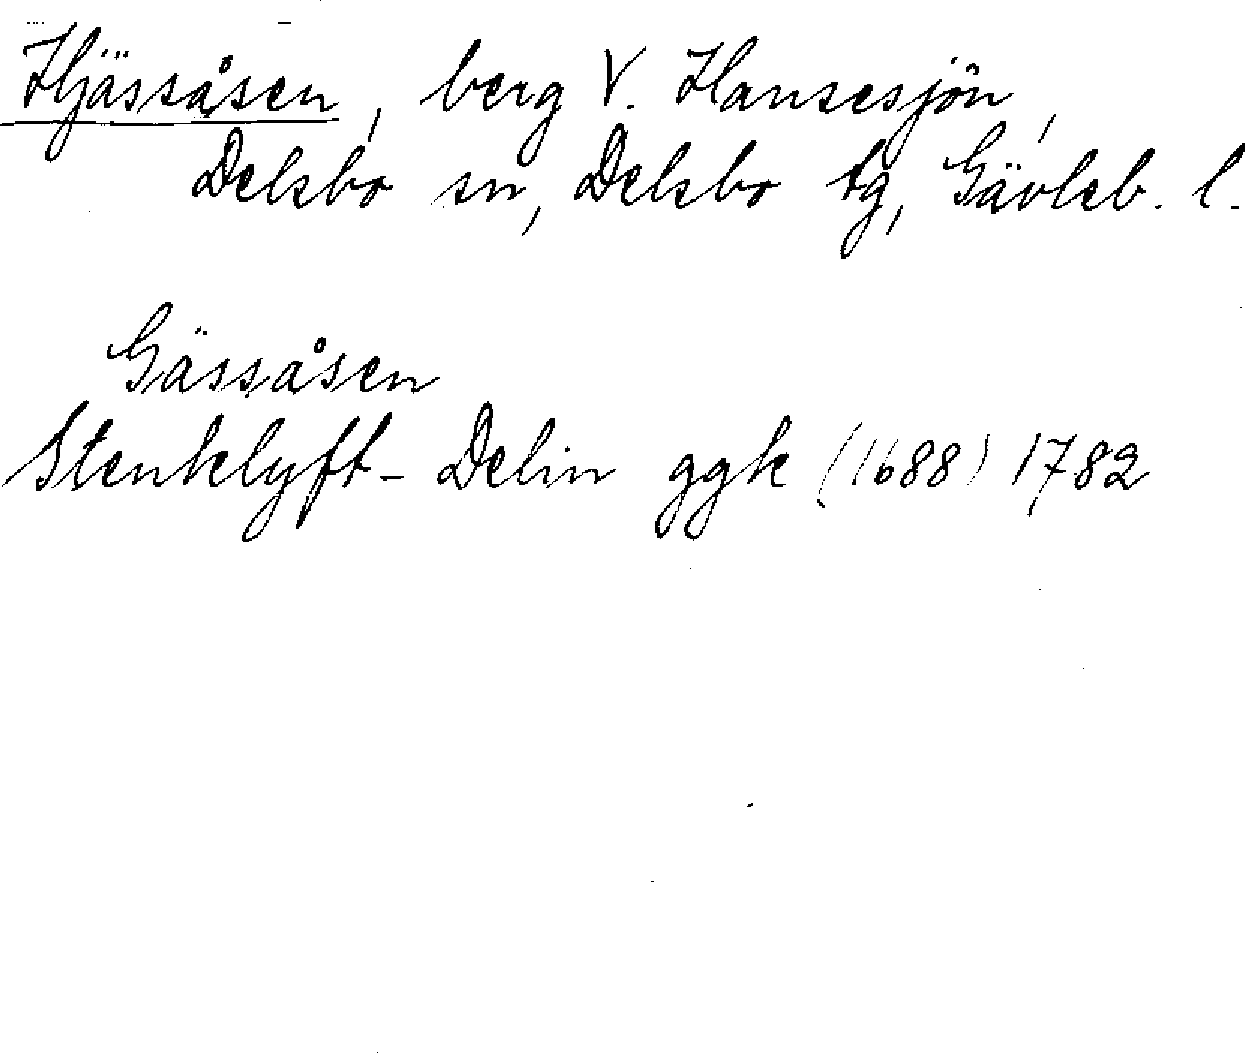 Hjässåsen, berg V. Hansesjön,
Delsbo sn, Delsbo tg, Gävleb. l.
Gässåsen
Stenklyft- Delin ggk (1688) 1782